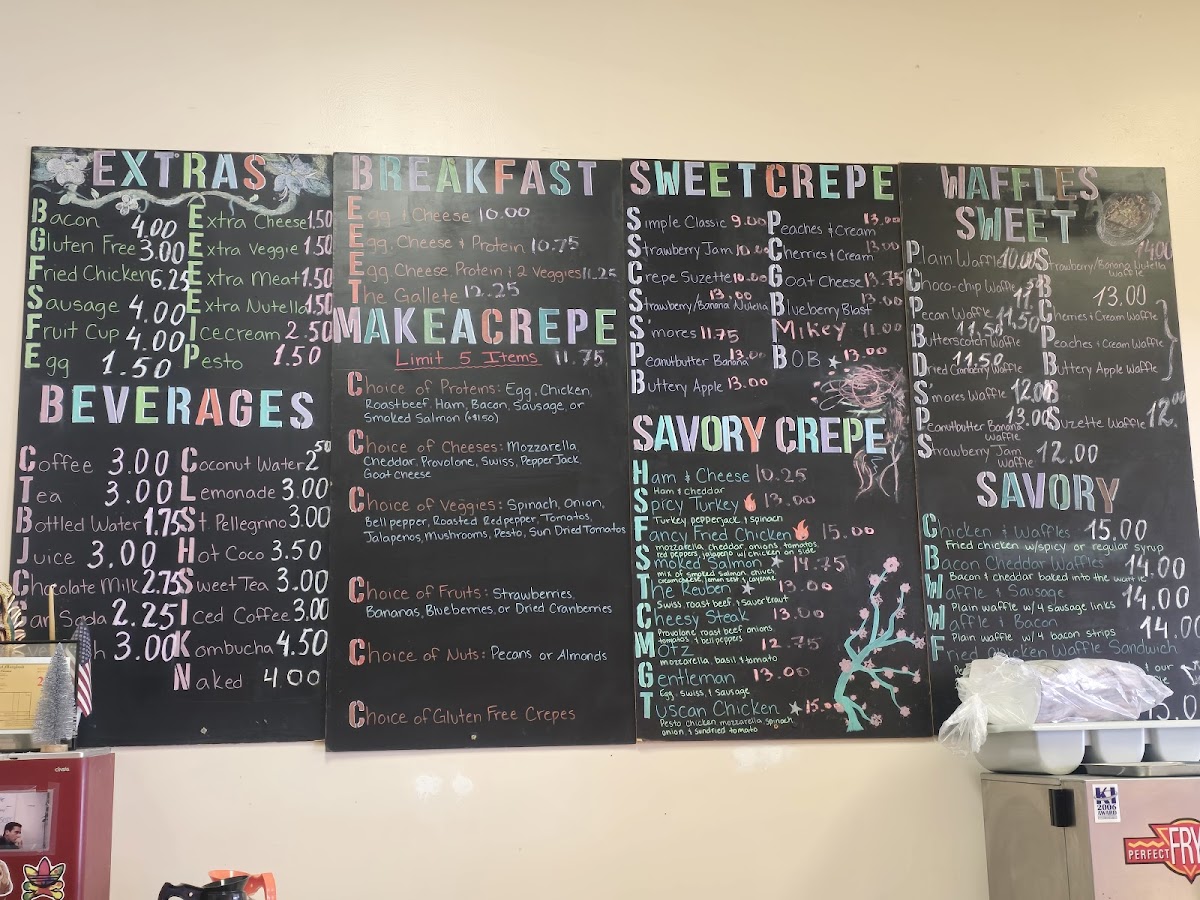 EXTRAS
Bacon 4.00
Gluten Free 3.00
Fried Chicken 6.25
Sausage 4.00
Fruit Cup 4.00
Egg 1.50
Extra Cheese 1.50
Extra Veggie 1.50
Extra Meat 1.50
Extra Nutella 1.50
Icecream 2.50
Pesto 1.50
BEVERAGES
Coffee 3.00
Tea 3.00
Bottled Water 1.75
Juice 3.00
Chocolate Milk 2.75
Can Soda 2.25
3.00
Coconut Water 2.50
Lemonade 3.00
St. Pellegrino 3.00
Hot Coco 3.50
Sweet Tea 3.00
Iced Coffee 3.00
Kombucha 4.50
Naked 4.00
BREAKFAST
Egg & Cheese 10.00
Egg, Cheese & Protein 10.75
Egg Cheese, Protein & 2 Veggies 11.25
The Gallete 12.25
MAKE A CREPE
Limit 5 Items 11.75
Choice of Proteins: Egg, Chicken,
Roastbeef, Ham, Bacon, Sausage, or
Smoked Salmon (+$1.50)
Choice of Cheeses: Mozzarella
Cheddar, Provolone, Swiss, Pepper Jack,
Goat cheese
Choice of Veggies: Spinach, Onion,
Bell pepper, Roasted Red pepper, Tomatos,
Jalapenos, Mushrooms, Pesto, Sun Dried Tomatos
Choice of Fruits: Strawberries,
Bananas, Blueberries, or Dried Cranberries
Choice of Nuts: Pecans or Almonds
Choice of Gluten Free Crepes
SWEET CREPE
Simple Classic 9.00
Strawberry Jam 10.00
Crepe Suzette 10.00
Strawberry/Banana Nutella 13.00
S'mores 11.75
Peanutbutter Banana 13.00
Buttery Apple 13.00
Peaches & Cream 13.00
Cherries & Cream 13.00
Goat Cheese 13.75
Blueberry Blast 13.00
Mikey 11.00
BOB 13.00
SAVORY CREPE
Ham & Cheese 10.25
Ham & cheddar
Spicy Turkey 13.00
Turkey, pepperjack, & spinach
Fancy Fried Chicken 15.00
mozzarella, cheddar, onions, tomatos,
red peppers, jalapeño w/ chicken on side
Smoked Salmon 14.75
mix of smoked salmon, chives,
creamcheese, lemon zest & cayenne
The Reuben 13.00
Swiss, roast beef, & sauerkraut
Cheesy Steak 13.00
Provolone roast beef onions
tomatos & bell peppers
Motz 12.75
mozzarella, basil & tomato
Gentleman 13.00
Egg, swiss, & sausage
Tuscan Chicken 15.00
Pesto, chicken, mozzarella, spinach,
onion, & sundried tomato
WAFFLES
SWEET
Plain Waffle 10.00
Choco-chip Waffle
Pecan Waffle 11.50
Butterscotch Waffle 11.50
Dried Cranberry Waffle 11.50
S'mores Waffle 12.00
Peanutbutter Banana Waffle 13.00
Strawberry Jam Waffle 12.00
Strawberry/Banana Nutella Waffle 14.00
13.00
Cherries & Cream Waffle
Peaches & Cream Waffle
Buttery Apple Waffle
Suzette Waffle 12.00
SAVORY
Chicken & Waffles 15.00
Fried chicken w/ spicy or regular syrup
Bacon Cheddar Waffles 14.00
Bacon & cheddar baked into the waffle
Waffle & Sausage 14.00
Plain waffle w/ 4 sausage links
Waffle & Bacon 14.00
Plain waffle w/ 4 bacon strips
Fried Chicken Waffle Sandwich
our
KI
2006
AWARD
PERFECT FRY